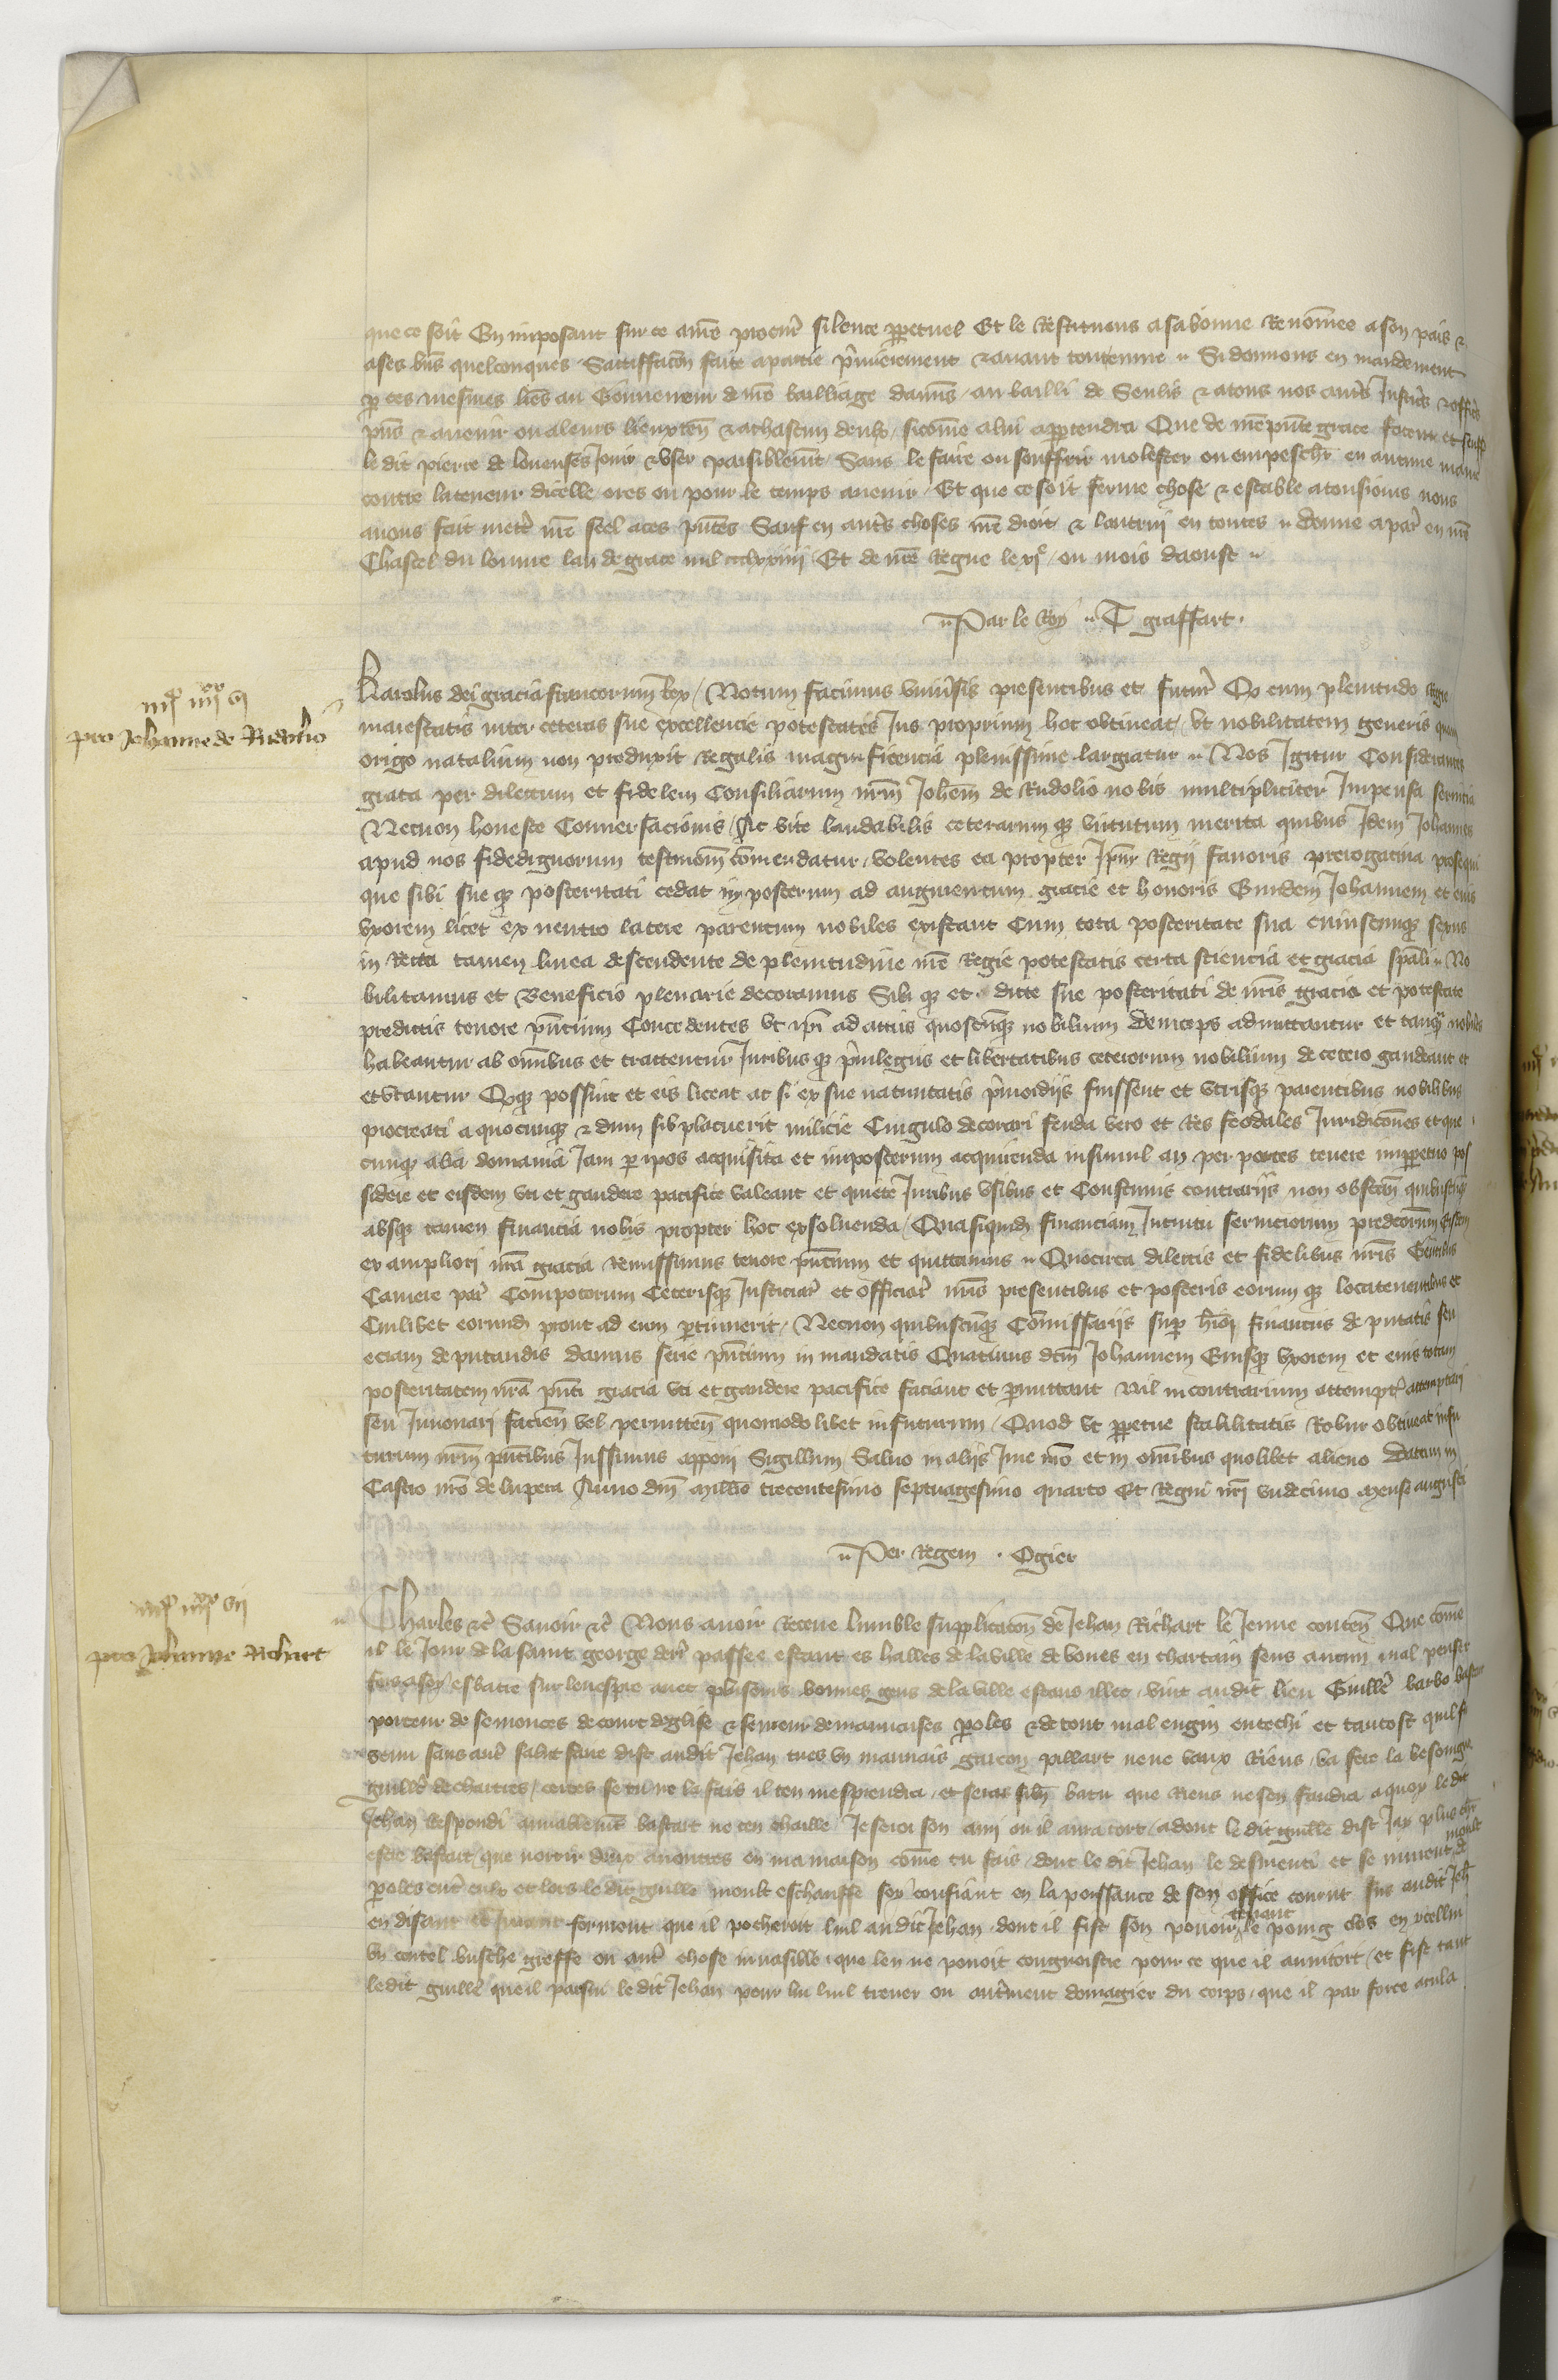 que ce soit En imposant sur ce a nr̃e procur̃ silence ꝑpetuel Et le Restituons a sa bonne Renom̃ee a son pais &
a ses bñs quelconques Satisffacõn faite a partie p̃mierement & auant toute euure Si donnons en mandement
ꝑ ces mesmes lr̃es au Gouuerneur de nr̃e bailliage damñs au bailli de Senlis & a tous nos autr̃s Justic̃s & offic̃s
pñs & auenir ou a leurs lieuxteñ & a chascun deulx sicom̃e a lui appartendra Que de nr̃e pñte grace facent et seuffr̃
le dit pierre de louenses Joir & vser paisiblem̃t Sans le faire ou souffrir molester ou empeschr̃ en aucune manie
contre la teneur dicelle ores ou pour le temps auenir Et que ce soit ferme chose & estable a tousiours nous
auons fait metr̃e nr̃e seel a ces pñtes Sauf en autr̃s choses nr̃e droit & lautruj en toutes donne a par̃ en nr̃e
Chastel du louure lan de grace mil ccclxxiiij Et de nr̃e Regne le xjᵉ ou mois daoust
Par le Roy T graffart
iijᶜ iiijˣˣ vj
pro Johanne de Rudolio
Karolus dei gracia francorum Rex Notum facimus vniuersis presentibus et futur̃ Qꝫ cum plenitudo Regie
maiestatis inter ceteras sue excellencie potestates Jus proprium hoc obtineat vt nobilitatem generis quam
origo natalium non produxit Regalis magnificencia plenissime largiatur Nos Igitur Considerantes
grata per dilectum et fidelem Consiliarium nr̃m Joh̃em de Rudolio nobis multipliciter Impensa seruicia
Necnon honeste Conuersacionis Ac vite laudabilis ceterarumqꝫ virtutum merita quibus Idem Johannes
apud nos fidedignorum testimoñ com̃endatur volentes ea propter Ipm̃ Regij fauoris prerogatiua prosequi
que sibi sueqꝫ posteritati cedat in posterum ad augmentum gracie et honoris Eundem Johannem et eius
vxorem licet ex neutro latere parentum nobiles existant Cum tota posteritate sua cuiuscumqꝫ sexus
in Recta tamen linea descendente de plenitudine nr̃e Regie potestatis certa sciencia et gracia sp̃ali No
bilitamus et Beneficio plenarie decoramus Sibiqꝫ et dicte sue posteritati de nr̃is gracia et potestate
predictis tenore pñcium Concedentes vt ip̃i ad actus quoscũqꝫ nobilium deinceps admittantur et tanqꝫ nobiles
habeantur ab om̃ibus et tractentur Juribusqꝫ p̃uilegiis et libertatibus ceterorum nobilium de cetero gaudeant et
et vtantur Qꝫqꝫ possint et eis liceat ac si ex sue natiuitatis p̃mordijs fuissent et vtrisqꝫ parentibus nobilibus
procreati a quocunqꝫ & dum sib̃ placuerit milicie Cingulo decorari feuda vero et Res feodales Juridicões et que
cunqꝫ alia domania Jam ꝑ ip̃os acquisita et imposterum acquirenda insimul an per partes tenere imꝑpetuo pos
sidere et eisdem vti et gaudere pacifice valeant et quiete Juribus vsibus et Constumis contrarijs non obstañ quibuscũqꝫ
absqꝫ tamen financia nobis propter hoc exsoluenda Quasiquid̃ financiam Intuitu seruiciorum predcõrum Eisdem
ex ampliori nr̃a gracia Remissimus tenore pñcium et quittamus Quocirca dilectis et fidelibus nr̃is Gentibus
Camere par̃ Compotorum Ceterisqꝫ Justiciar̃ et officiar̃ nr̃is presentibus et posteris eorumqꝫ locatenentibus et
Cuilibet eorundẽ prout ad eum ꝑtinuerit Necnon quibuscũqꝫ Com̃issarijs suꝑ hm̃oj financiis deputatis seu
eciam deputandis damus serie pñcium in mandatis Quatinus dcm̃ Johannem Eiusqꝫ vxorem et eius totam
posteritatem nr̃a pñti gracia vti et gaudere pacifice faciant et ꝑmittant nil in contrarium attempt̃ attemptarj
seu Innouari facieñ vel permitteñ quomodolibet in futurum Quod vt ꝑpetue stabilitatis Robur obtineat in fu
turum nr̃m pñtibus Jussimus apponj Sigillum Saluo in alijs Jure nr̃o et in om̃ibus quolibet alieno Datum in
Castro nr̃o de lupera Anno dm̃ millĩo trecentesimo septuagesimo quarto Et Regni nr̃j vndecimo mense augusti
Per Regem Ogier
iijᶜ iiijˣˣ vij
pro Johanne Richart
Charles &c̃ Sauoir &c̃ Nous auoir Receue lumble supplicacõn de Jehan Richart le Jeune conteñ Que com̃e
il le Jour de la saint george derr̃ passee estant es halles de la ville de boues en chartain sens aucun mal penser
fors a soy esbatre sur lenespre auec plusieurs bonnes gens de la ville estans illec vint audit lieu Guillẽ barbo bastart
porteur de semonces de court deglise & semeur de mauuaises ꝑoles & de tout mal engin entechi et tantost quil f
venu sans autr̃ salut faire dist audit Jehan tu es vn mauuais garcon pillart ne ne vaux Riens va fere la besongne
guillẽ de chartres certes se tu ne la fais il ten mesprendra et seras sib̃n batu que Riens ne sen faudra a quoy le dit
Jehan Respondi amiablem̃t bastart ne ten chaille Je seroi son amj ou il aura tort adont le dit guillẽ dist Jay plus ch̃r
estre bastart que norrir deux auoutres en ma maison com̃e tu fais dont le dit Jehan le desmenti et se murent de moult
ꝑoles entr̃ eulx et lors le dit guillẽ moult eschauffe soy confiant en la poissance de son office courut sur audit Jeh̃
en disant et Jurant forment que il pocheroit luil audit Jehan dont il fist son pouoir tenant le poing clos en ycellui
vn coutel busche greffe ou autr̃ chose inuasible que len ne pouoit congnoistre pour ce que il anuitoit et fist tant
le dit guillẽ que il parsui le dit Jehan pour lui luil creuer ou autr̃ment domagier du corps que il par force acula